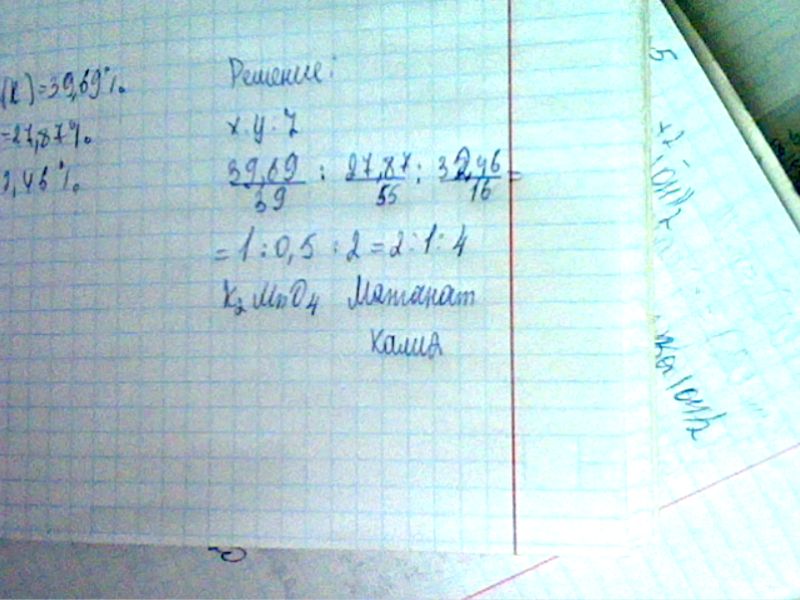 (K) = 39,69%
= 27,87%
,46%
Решение:
x : y : z
39,69 / 39 : 27,87 / 55 : 32,46 / 16 =
= 1 : 0,5 : 2 = 2 : 1 : 4
K₂MnO₄ Манганат
калия